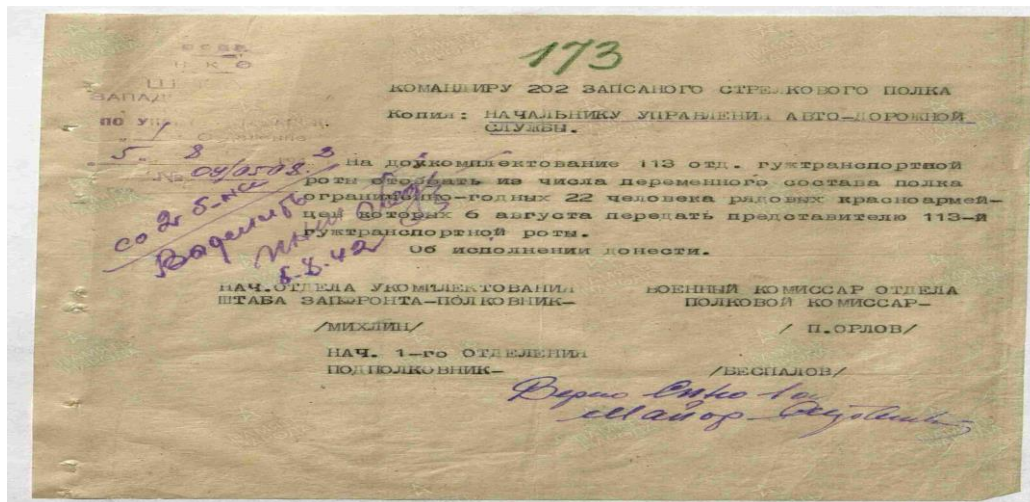 173
СССР
Н К О
КОМАНДИРУ 202 ЗАПСАНОГО СТРЕЛКОВОГО ПОЛКА
Копия: НАЧАЛЬНИКУ УПРАВЛЕНИЯ АВТО-ДОРОЖНОЙ
СЛУЖБЫ.
5. 8
№ 04/0508
На доукомплектование 113 отд. гужтранспортной
роты отобрать из числа переменного состава полка
ограниченно-годных 22 человека рядовых красноармей-
цев которых 6 августа передать представителю 113-й
гужтранспортной роты.
Об исполнении донести.
со 2г б-на
Выделить
5.8.42
НАЧ.ОТДЕЛА УКОМПЛЕКТОВАНИЯ
ШТАБА ЗАПФРОНТА-ПОЛКОВНИК-
/МИХЛИН/
ВОЕННЫЙ КОМИССАР ОТДЕЛА
ПОЛКОВОЙ КОМИССАР-
/ П.ОРЛОВ/
НАЧ. 1-го ОТДЕЛЕНИЯ
ПОДПОЛКОВНИК-
/БЕСПАЛОВ/
Верно
Майор